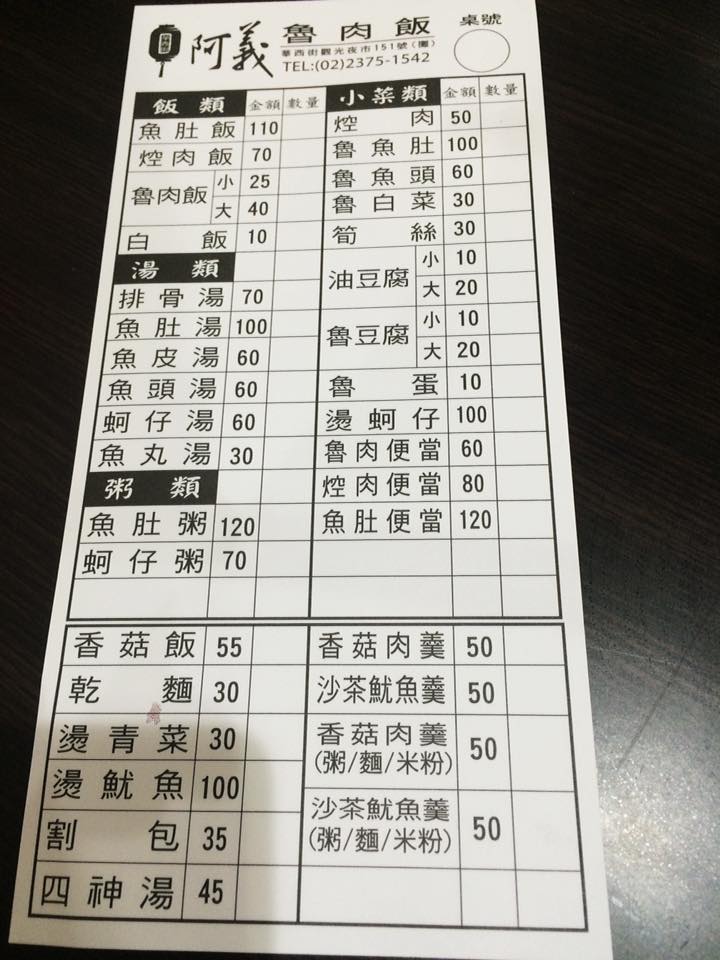 阿義 魯肉飯 桌號
華西街觀光夜市151號(攤)
TEL:(02)2375-1542
飯類 金額 數量
魚肚飯 110
焢肉飯 70
魯肉飯 小 25
大 40
白飯 10
湯類
排骨湯 70
魚肚湯 100
魚皮湯 60
魚頭湯 60
蚵仔湯 60
魚丸湯 30
粥類
魚肚粥 120
蚵仔粥 70
小菜類 金額 數量
焢肉 50
魯魚肚 100
魯魚頭 60
魯白菜 30
筍絲 30
油豆腐 小 10
大 20
魯豆腐 小 10
大 20
魯蛋 10
燙蚵仔 100
魯肉便當 60
焢肉便當 80
魚肚便當 120
香菇飯 55
乾麵 30
燙青菜 30
燙魷魚 100
割包 35
四神湯 45
香菇肉羹 50
沙茶魷魚羹 50
香菇肉羹
(粥/麵/米粉) 50
沙茶魷魚羹
(粥/麵/米粉) 50